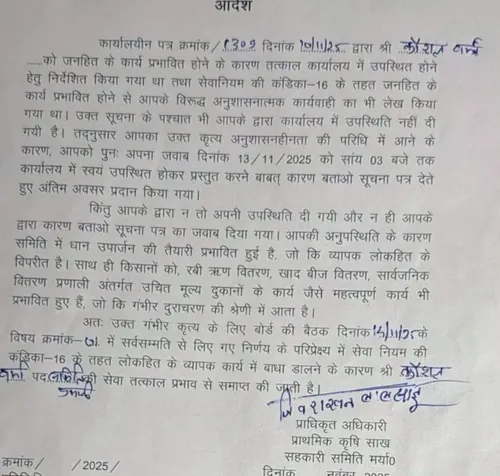 आदेश
कार्यालयीन पत्र क्रमांक/1302 दिनांक 10/11/25 द्वारा श्री कौशल वर्मा
......को जनहित के कार्य प्रभावित होने के कारण तत्काल कार्यालय में उपस्थित होने
हेतु निर्देशित किया गया था तथा सेवानियम की कंडिका–16 के तहत जनहित के
कार्य प्रभावित होने से आपके विरूद्ध अनुशासनात्मक कार्यवाही का भी लेख किया
गया था। उक्त सूचना के पश्चात भी आपके द्वारा कार्यालय में उपस्थिति नहीं दी
गयी है। तद्नुसार आपका उक्त कृत्य अनुशासनहीनता की परिधि में आने के
कारण, आपको पुनः अपना जवाब दिनांक 13/11/2025 को सांय 03 बजे तक
कार्यालय में स्वयं उपस्थित होकर प्रस्तुत करने बाबत् कारण बताओ सूचना पत्र देते
हुए अंतिम अवसर प्रदान किया गया।
किंतु आपके द्वारा न तो अपनी उपस्थिति दी गयी और न ही आपके
द्वारा कारण बताओ सूचना पत्र का जवाब दिया गया। आपकी अनुपस्थिति के कारण
समिति में धान उपार्जन की तैयारी प्रभावित हुई है, जो कि व्यापक लोकहित के
विपरीत है। साथ ही किसानों को, रबी ऋण वितरण, खाद बीज वितरण, सार्वजनिक
वितरण प्रणाली अंतर्गत उचित मूल्य दुकानों के कार्य जैसे महत्वपूर्ण कार्य भी
प्रभावित हुए हैं, जो कि गंभीर दुराचरण की श्रेणी में आता है।
अतः उक्त गंभीर कृत्य के लिए बोर्ड की बैठक दिनांक 14/11/25 के
विषय क्रमांक-01 में सर्वसम्मति से लिए गए निर्णय के परिप्रेक्ष्य में सेवा नियम की
कंडिका–16 के तहत लोकहित के व्यापक कार्य में बाधा डालने के कारण श्री कौशल
वर्मा पद की सेवा तत्काल प्रभाव से समाप्त की जाती है।
प्राधिकृत अधिकारी
प्राथमिक कृषि साख
सहकारी समिति मर्या0
क्रमांक / /2025/
दिनांक नवंबर 2025